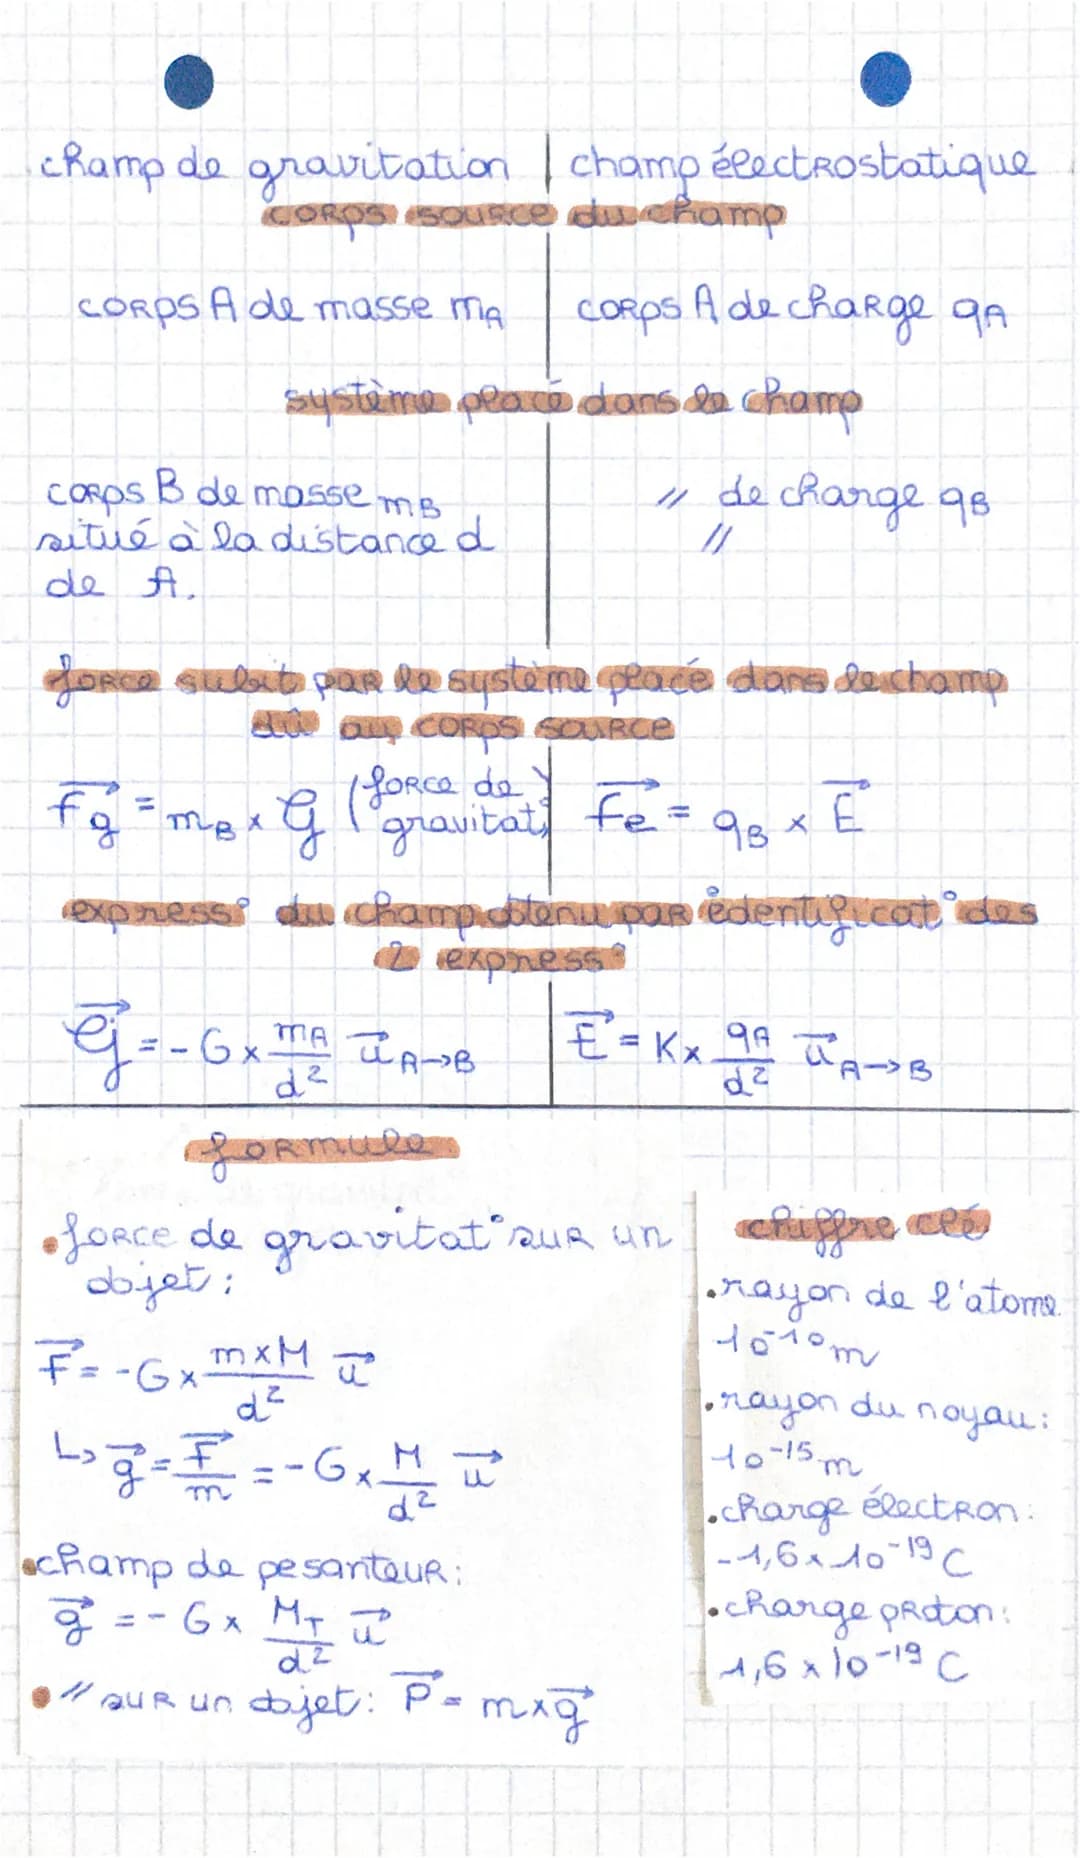 champ de gravitation | champ électrostatique
corps source du champ
corps A de masse mA | corps A de charge qA
système placé dans le champ
corps B de masse mB | // de charge qB
situé à la distance d | //
de A.
force subit par le système placé dans le champ
dû au corps source
F⃗g = mB × G (force de gravitat°) | F⃗e = qB × E⃗
express° du champ obtenu par identificat° des
2 express°
G⃗ = - G × mA/d² u⃗ A→B | E⃗ = K × qA/d² u⃗ A→B
formule
• force de gravitat° sur un
objet :
F⃗ = - G × m×M/d² u⃗
↳ g⃗ = F⃗/m = - G × M/d² u⃗
• champ de pesanteur :
g⃗ = - G × MT/d² u⃗
• // sur un objet : P⃗ = m×g⃗
chiffre clé
• rayon de l'atome
10⁻¹⁰ m
• rayon du noyau :
10⁻¹⁵ m
• charge électron :
-1,6 × 10⁻¹⁹ C
• charge proton :
1,6 × 10⁻¹⁹ C